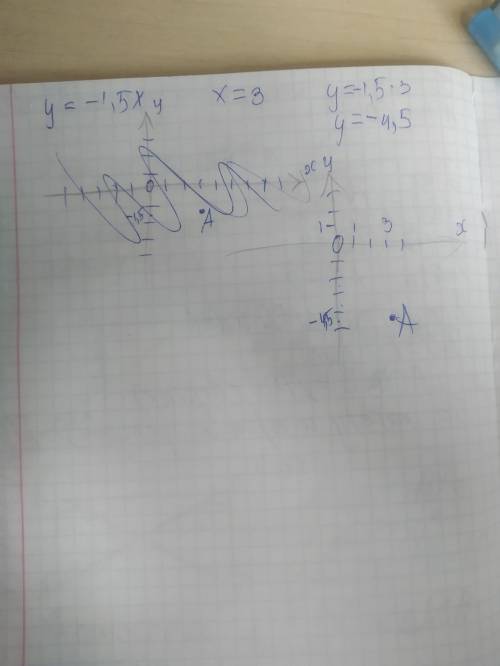 y = -1,5x   x = 3   y = -1,5·3
y = -4,5
y
x
0
-1,5
A
y
1
0
3
x
-4,5
A